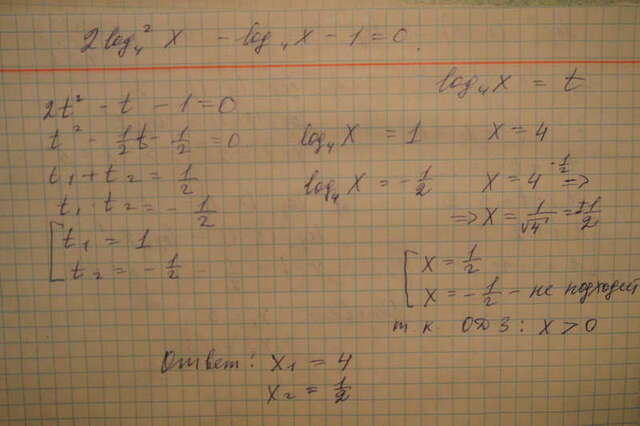 2log₄² x - log₄ x - 1 = 0.
log₄ x = t
2t² - t - 1 = 0
t² - 1/2 t - 1/2 = 0
t₁ + t₂ = 1/2
t₁ · t₂ = - 1/2
[ t₁ = 1
t₂ = - 1/2
log₄ x = 1 x = 4
log₄ x = - 1/2 x = 4^(-1/2) =>
=> x = 1/√4 = ± 1/2
[ x = 1/2
x = - 1/2 - не подходит
т к ОДЗ: x > 0
Ответ: x₁ = 4
x₂ = 1/2